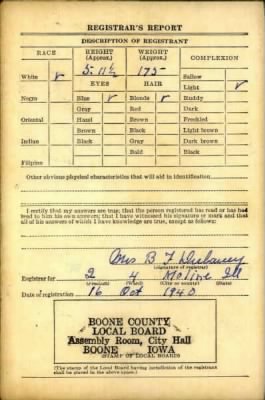 REGISTRAR'S REPORT
DESCRIPTION OF REGISTRANT
RACE HEIGHT (Approx.) WEIGHT (Approx.) COMPLEXION
White ✓ 5' 11½ 175 Sallow
EYES HAIR Light ✓
Negro Blue ✓ Blonde ✓ Ruddy
Gray Red Dark
Oriental Hazel Brown Freckled
Brown Black Light brown
Indian Black Gray Dark brown
Bald Black
Filipino
Other obvious physical characteristics that will aid in identification
I certify that my answers are true; that the person registered has read or has had
read to him his own answers; that I have witnessed his signature or mark and that
all of his answers of which I have knowledge are true, except as follows:
Mrs B F
(Signature of registrar)
Registrar for 2 4 Moline Ill
(Precinct) (Ward) (City or county) (State)
Date of registration 16 Oct 1940
BOONE COUNTY
LOCAL BOARD
Assembly Room, City Hall
BOONE IOWA
(STAMP OF LOCAL BOARD)
(The stamp of the Local Board having jurisdiction of the registrant
shall be placed in the above space.)